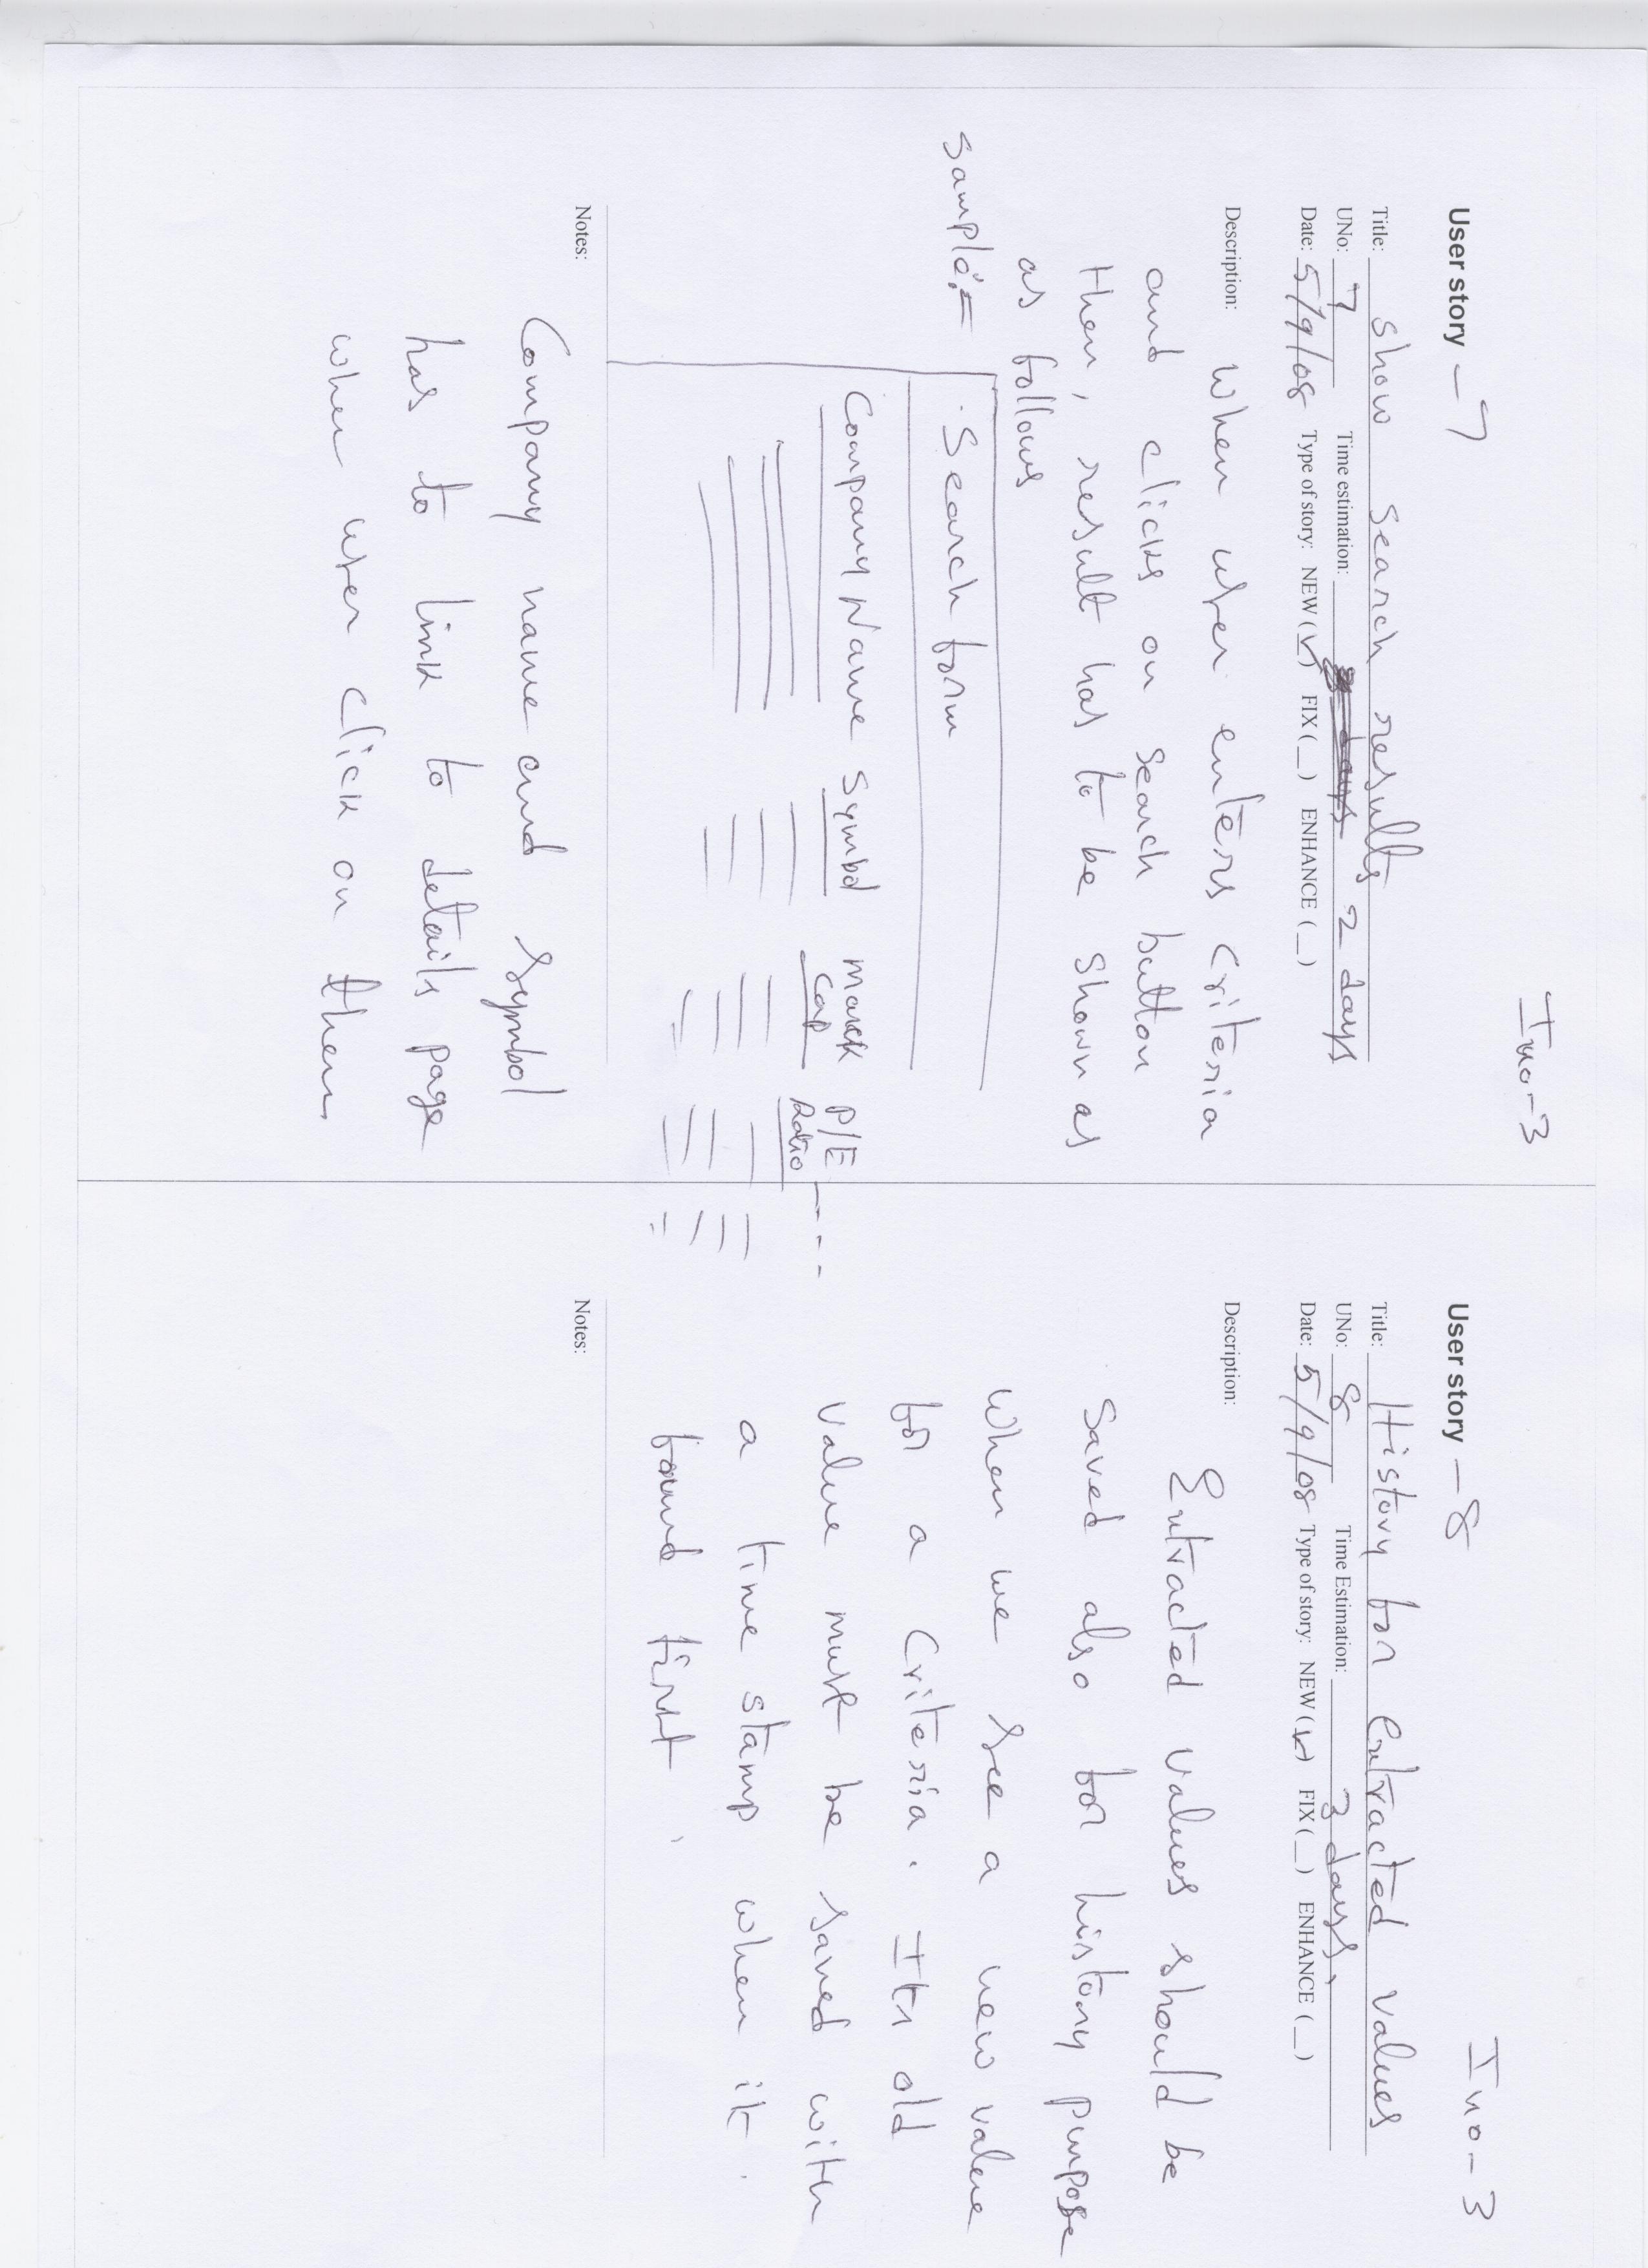 Ino-3
User story - 7
Title: Show search results
UNo: 7 Time estimation: 2 days
Date: 5/9/08 Type of story: NEW (✓) FIX (_) ENHANCE (_)
Description: When user enters Criteria
and clicks on Search button
then, result has to be shown as
as follows
Sample:-
Search form
Company Name Symbol Mark Cap P/E Ratio ----
Notes:
Company name and Symbol
has to link to details page
when user click on them
Ino-3
User story - 8
Title: History for Extracted values
UNo: 8 Time Estimation: 3 days.
Date: 5/9/08 Type of story: NEW (✓) FIX (_) ENHANCE (_)
Description:
Extracted values should be
saved also for history purpose
When we see a new value
for a Criteria. Its old
value must be saved with
a time stamp when it
found first.
Notes: